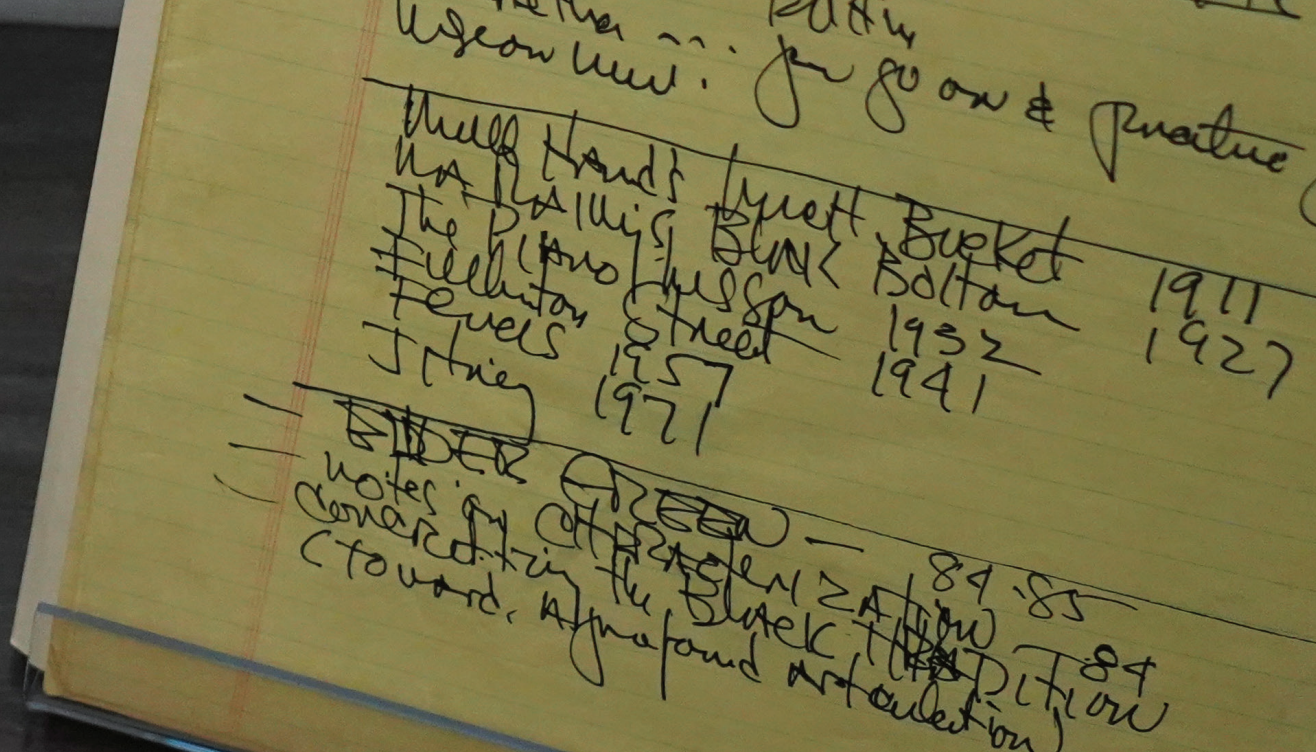 you go on &
Mill Hand's Lunch Bucket 1911
MA RAINEY's Black Bottom 1927
The Piano Lesson 1932
Fullerton Street 1941
Fences 1957
Jitney 1971
GREEN — 84.85
notes on CHARACTERIZATION — 84
Concretizing the BLACK TRADITION
(toward A profound articulation)